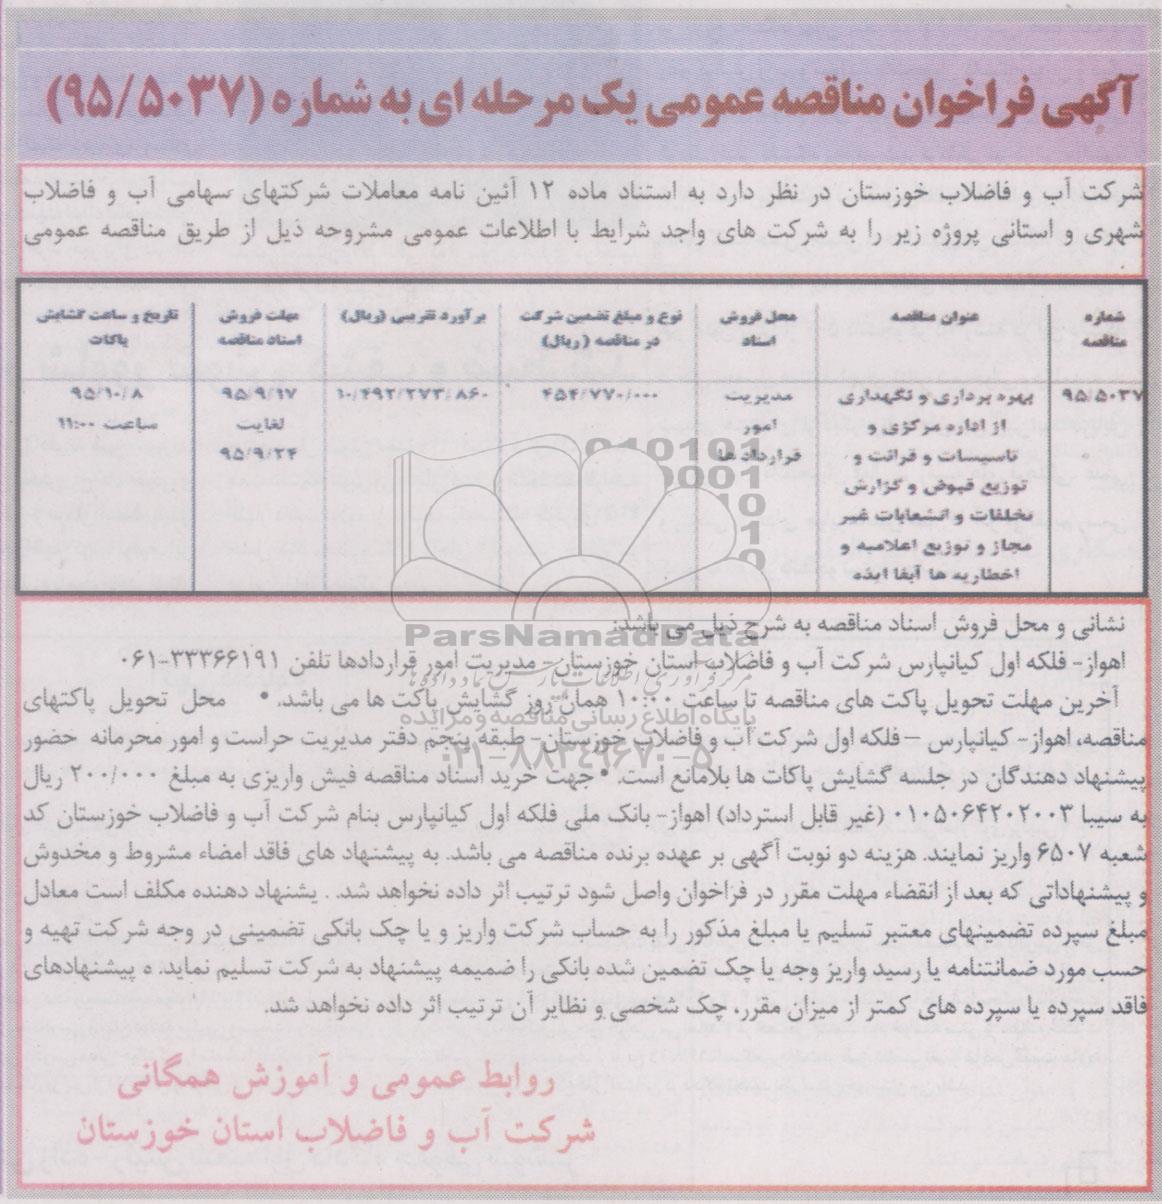 آگهی فراخوان مناقصه عمومی یک مرحله ای به شماره (۹۵/۵۰۳۷)
شرکت آب و فاضلاب خوزستان در نظر دارد به استناد ماده ۱۲ آئین نامه معاملات شرکتهای سهامی آب و فاضلاب
شهری و استانی پروژه زیر را به شرکت های واجد شرایط با اطلاعات عمومی مشروحه ذیل از طریق مناقصه عمومی
شماره مناقصه
عنوان مناقصه
محل فروش اسناد
نوع و مبلغ تضمین شرکت در مناقصه (ریال)
برآورد تقریبی (ریال)
مهلت فروش اسناد مناقصه
تاریخ و ساعت گشایش پاکات
۹۵/۵۰۳۷
بهره برداری و نگهداری
از اداره مرکزی و
تاسیسات و قرائت و
توزیع قبوض و گزارش
تخلفات و انشعابات غیر
مجاز و توزیع اعلامیه و
اخطاریه ها آبفا ایذه
مدیریت
امور
قرارداد ها
۴۵۴/۷۷۰/۰۰۰
۱۰/۴۹۲/۲۷۳/۸۶۰
۹۵/۹/۱۷
لغایت
۹۵/۹/۲۴
۹۵/۱۰/۸
ساعت ۱۱:۰۰
نشانی و محل فروش اسناد مناقصه به شرح ذیل می باشد:
اهواز- فلکه اول کیانپارس شرکت آب و فاضلاب استان خوزستان- مدیریت امور قراردادها تلفن ۳۳۳۶۶۱۹۱-۰۶۱
آخرین مهلت تحویل پاکت های مناقصه تا ساعت ۱۰:۰۰ همان روز گشایش پاکت ها می باشد. • محل تحویل پاکتهای
مناقصه، اهواز- کیانپارس –فلکه اول شرکت آب و فاضلاب خوزستان- طبقه پنجم دفتر مدیریت حراست و امور محرمانه حضور
پیشنهاد دهندگان در جلسه گشایش پاکات ها بلامانع است. • جهت خرید اسناد مناقصه فیش واریزی به مبلغ ۲۰۰/۰۰۰ ریال
به سیبا ۰۱۰۵۰۶۴۲۰۲۰۰۳ (غیر قابل استرداد) اهواز- بانک ملی فلکه اول کیانپارس بنام شرکت آب و فاضلاب خوزستان کد
شعبه ۶۵۰۷ واریز نمایند. هزینه دو نوبت آگهی بر عهده برنده مناقصه می باشد. به پیشنهاد های فاقد امضاء مشروط و مخدوش
و پیشنهاداتی که بعد از انقضاء مهلت مقرر در فراخوان واصل شود ترتیب اثر داده نخواهد شد. . یشنهاد دهنده مکلف است معادل
مبلغ سپرده تضمینهای معتبر تسلیم یا مبلغ مذکور را به حساب شرکت واریز و یا چک بانکی تضمینی در وجه شرکت تهیه و
حسب مورد ضمانتنامه یا رسید واریز وجه یا چک تضمین شده بانکی را ضمیمه پیشنهاد به شرکت تسلیم نماید. ه پیشنهادهای
فاقد سپرده یا سپرده های کمتر از میزان مقرر، چک شخصی و نظایر آن ترتیب اثر داده نخواهد شد.
روابط عمومی و آموزش همگانی
شرکت آب و فاضلاب استان خوزستان
ParsNamadData
مرکز فرآوری اطلاعات پارس نماد داده ها
پایگاه اطلاع رسانی مناقصه و مزایده
۰۲۱-۸۸۳۴۹۶۷۰-۵